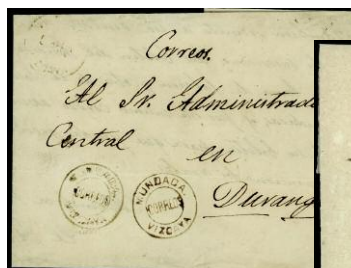 Correos.
Al Sr. Administrad
Central en
Durang
MUNDACA
VIZCAYA